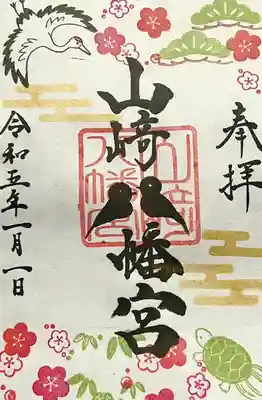 奉拝
山崎八幡宮
令和五年一月一日